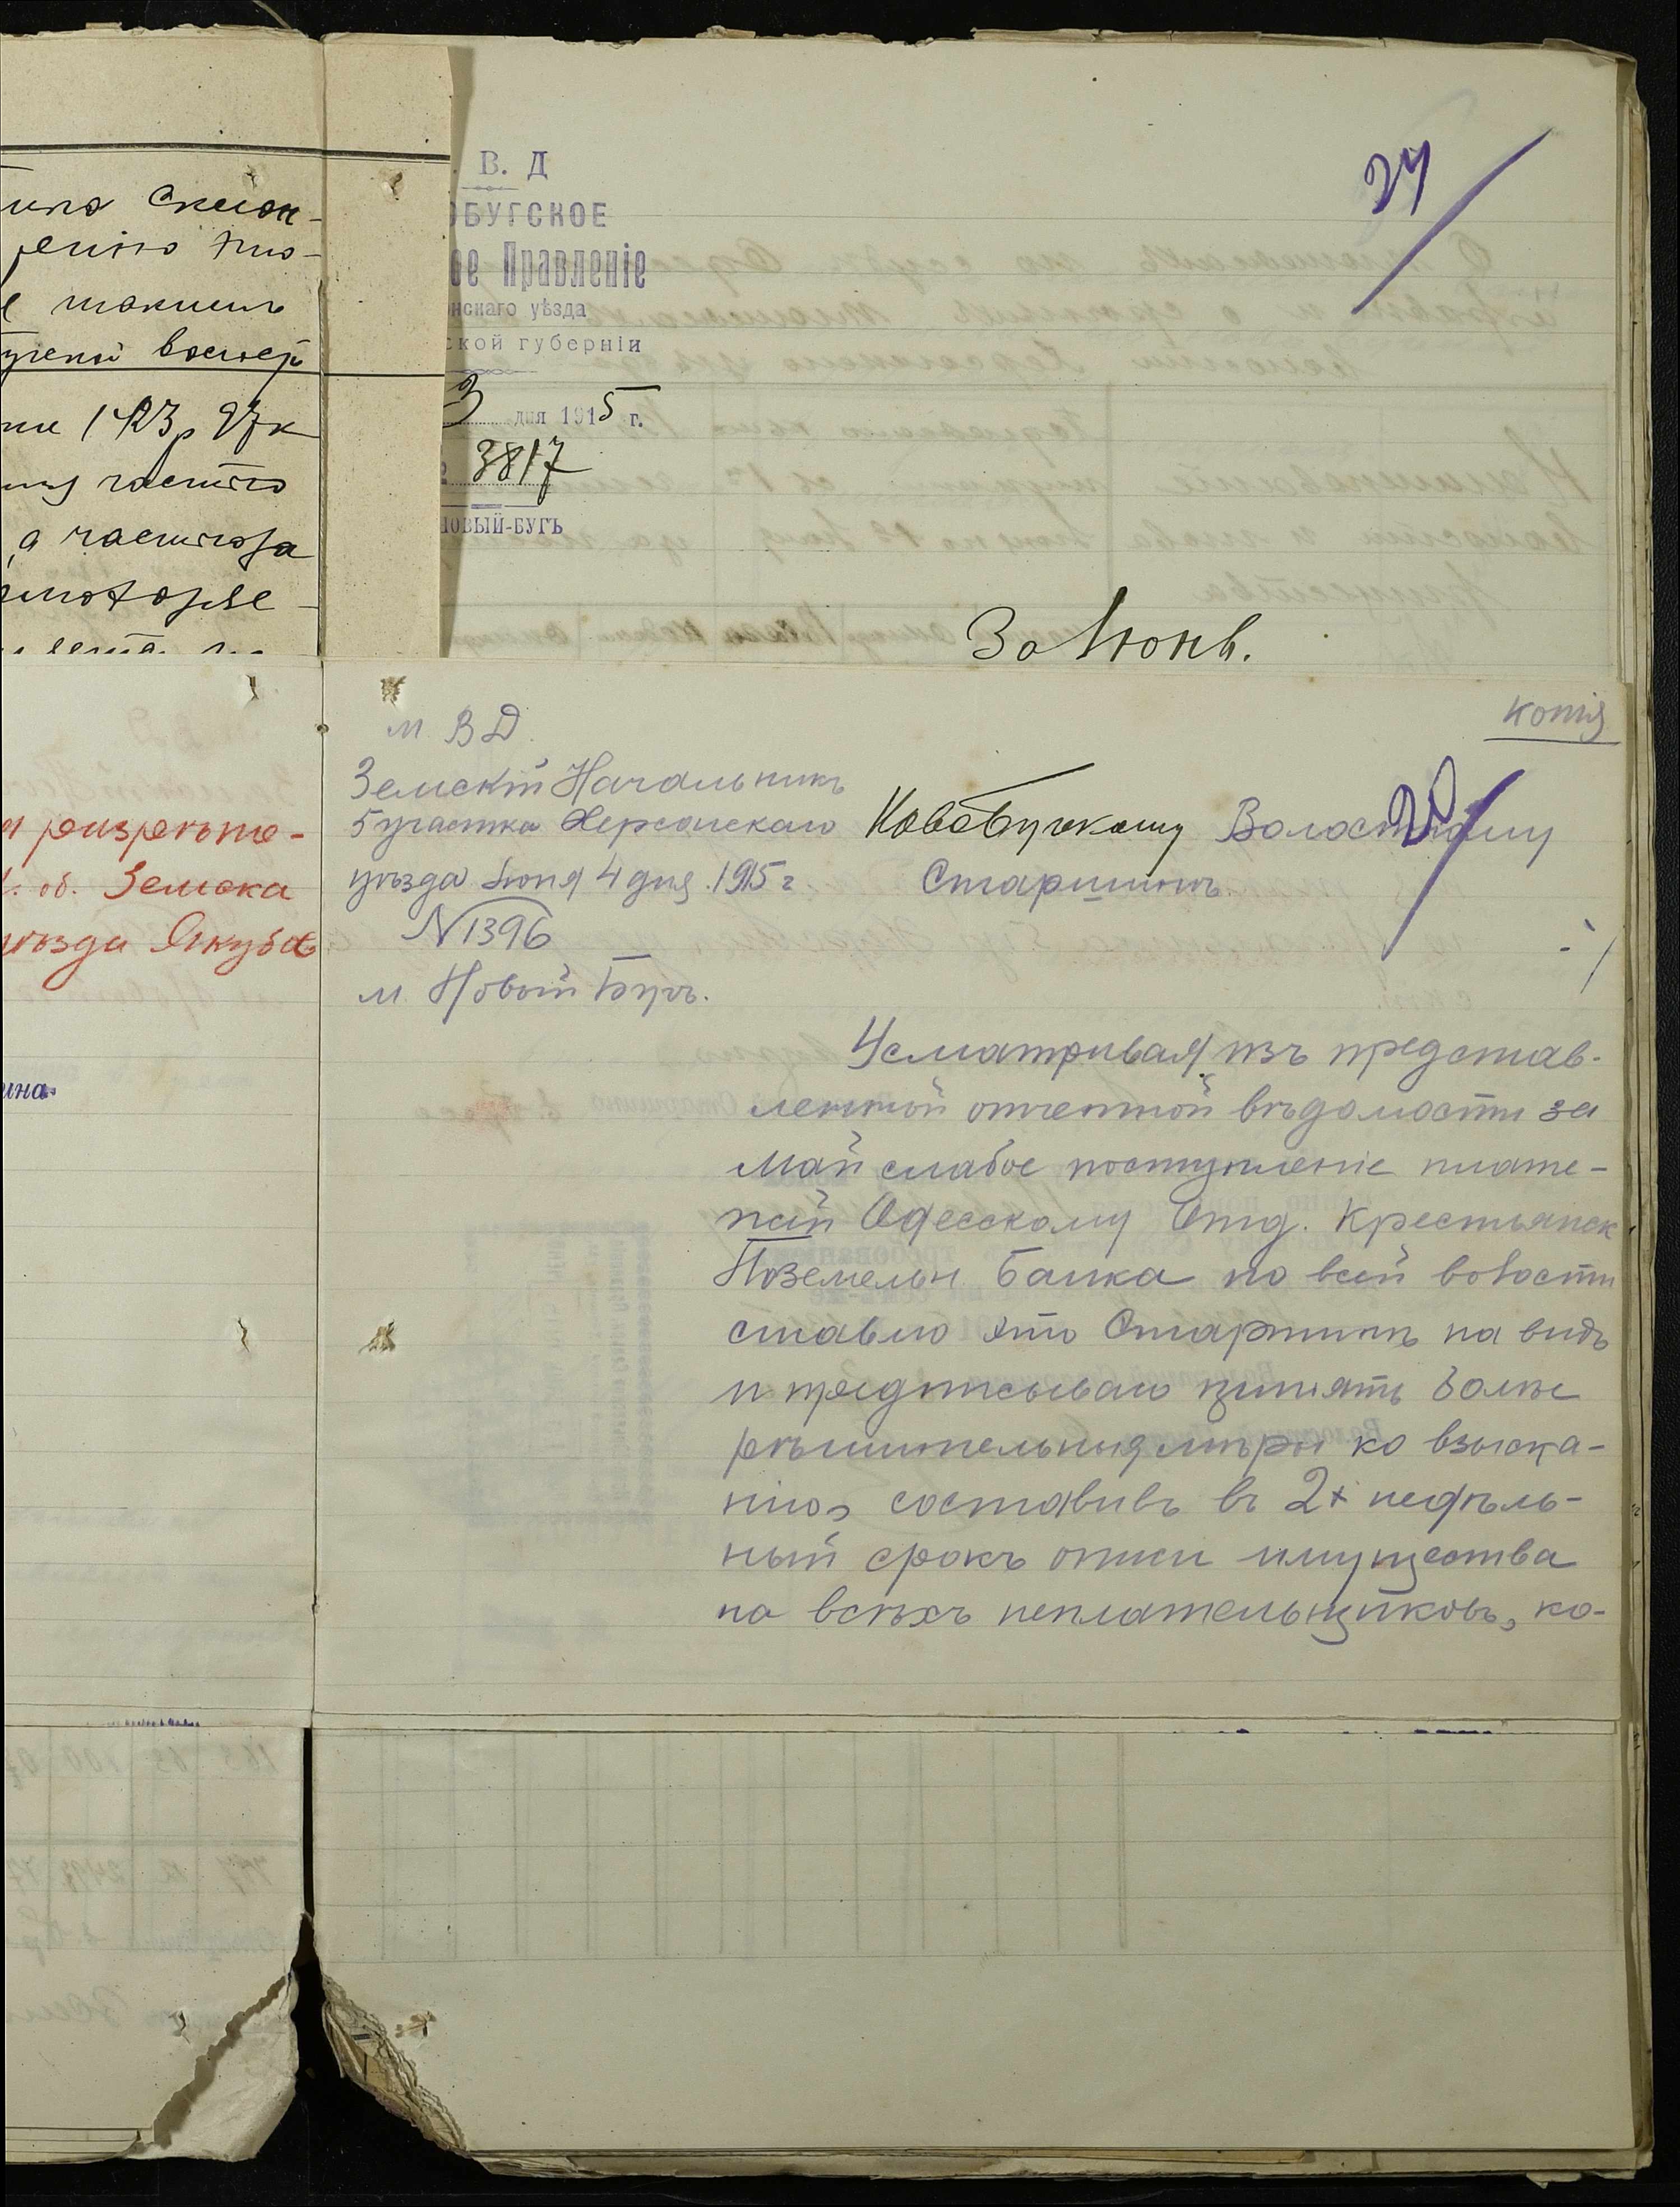 В. Д
ОБУГСКОЕ
ое Правленіе
нскаго уѣзда
ской губерніи
3 дня 1915 г.
3817
НОВЫЙ-БУГЪ
27
За Іюнь.
1423 р 97к
а частью за
об. Земска
уѣзда Якубов
ина
копія
20
М. В Д.
Земскій Начальникъ
5 участка Херсонскаго
уѣзда Іюня 4 дня 1915 г
N 1396
м. Новый Бугъ.
Новобугскому Волостному
Старшинѣ.
Усматривая изъ представ-
ленной отчетной вѣдомости за
Май слабое поступленіе плате-
жей Одесскому Отд. Крестьянск
Поземельн Банка по всей волости
ставлю это Старшинѣ на видъ
и предписываю принять болѣе
рѣшительныя мѣры ко взыска-
нію, составивъ въ 2х недѣль-
ный срокъ описи имущества
на всѣхъ неплательщиковъ, ко-